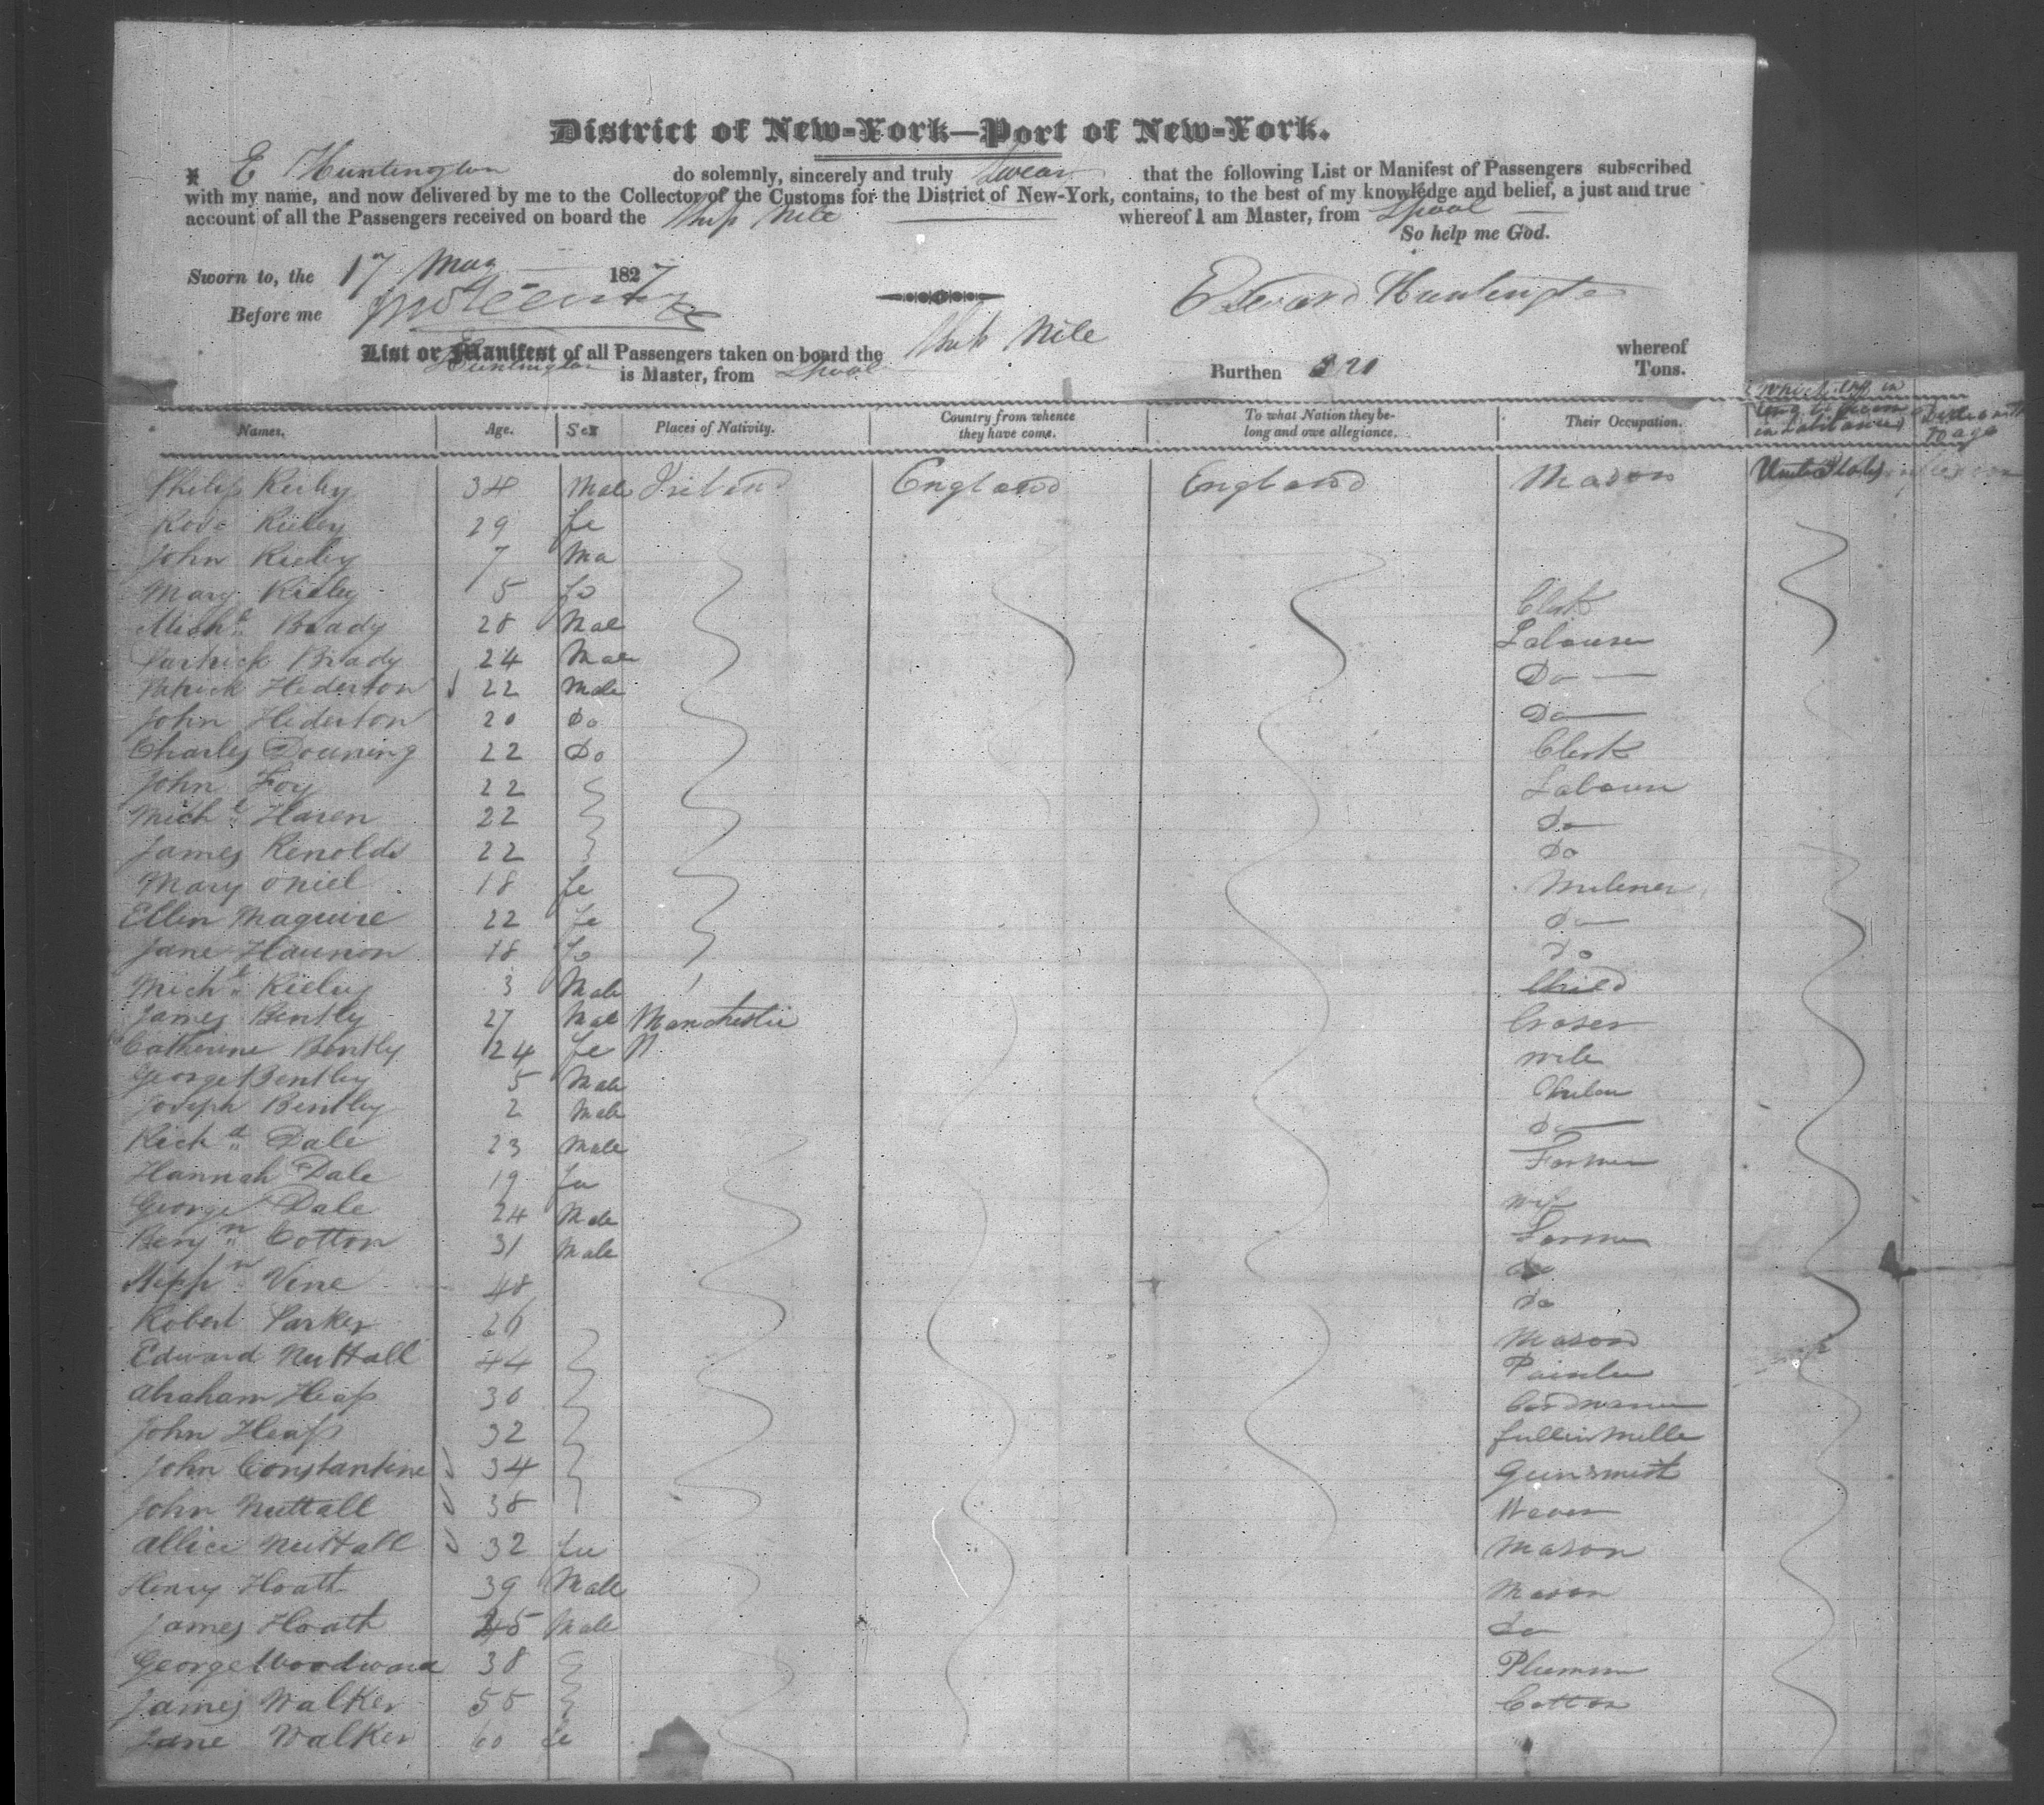 District of New-York—Port of New-York.
I E Huntington do solemnly, sincerely and truly Swear that the following List or Manifest of Passengers subscribed
with my name, and now delivered by me to the Collector of the Customs for the District of New-York, contains, to the best of my knowledge and belief, a just and true
account of all the Passengers received on board the Ship Nile whereof I am Master, from Lpool
So help me God.
Sworn to, the 17 May 1827
Before me
Edward Huntington
List or Manifest of all Passengers taken on board the Ship Nile whereof
Huntington is Master, from Lpool Burthen 321 Tons.
Names. Age. Sex Places of Nativity. Country from whence they have come. To what Nation they belong and owe allegiance. Their Occupation.
Philip Rieley 34 Male Ireland England England Mason United States
Rose Rieley 29 fe
John Rieley 7 Ma
Mary Rieley 5 fe
Michl Brady 28 Mal Clerk
Patrick Brady 24 Male Labourer
Patrick Hederton 22 Male Do
John Hederton 20 Do Do
Charles Douning 22 Do Clerk
John Foy 22 Labourer
Michl Haren 22 Do
James Renolds 22 Do
Mary Oniel 18 fe Milener
Ellen Maguire 22 fe Do
Jane Haunon 18 fe Do
Michl Rieley 3 Male Child
James Bently 27 Mal Manchester
Catherine Bently 24 fe
George Bentley 5 Male
Joseph Bentley 2 Male Do
Richd Dale 23 Male Farmer
Hannah Dale 19 fe wife
George Dale 24 Male Farmer
Benjn Cotton 31 Male do
Vine 48 do
Robert Parker 26 Mason
Edward Nuttall 44 Painter
Abraham Heap 30
John Heap 32
John Constantine 34 Gunsmith
John Nuttall 38 Weaver
Allice Nuttall 32 fe Mason
Henry Hoath 39 Male Mason
James Hoath 45 Male do
George Woodward 38
James Walker 55 Cotton
Jane Walker 60 fe